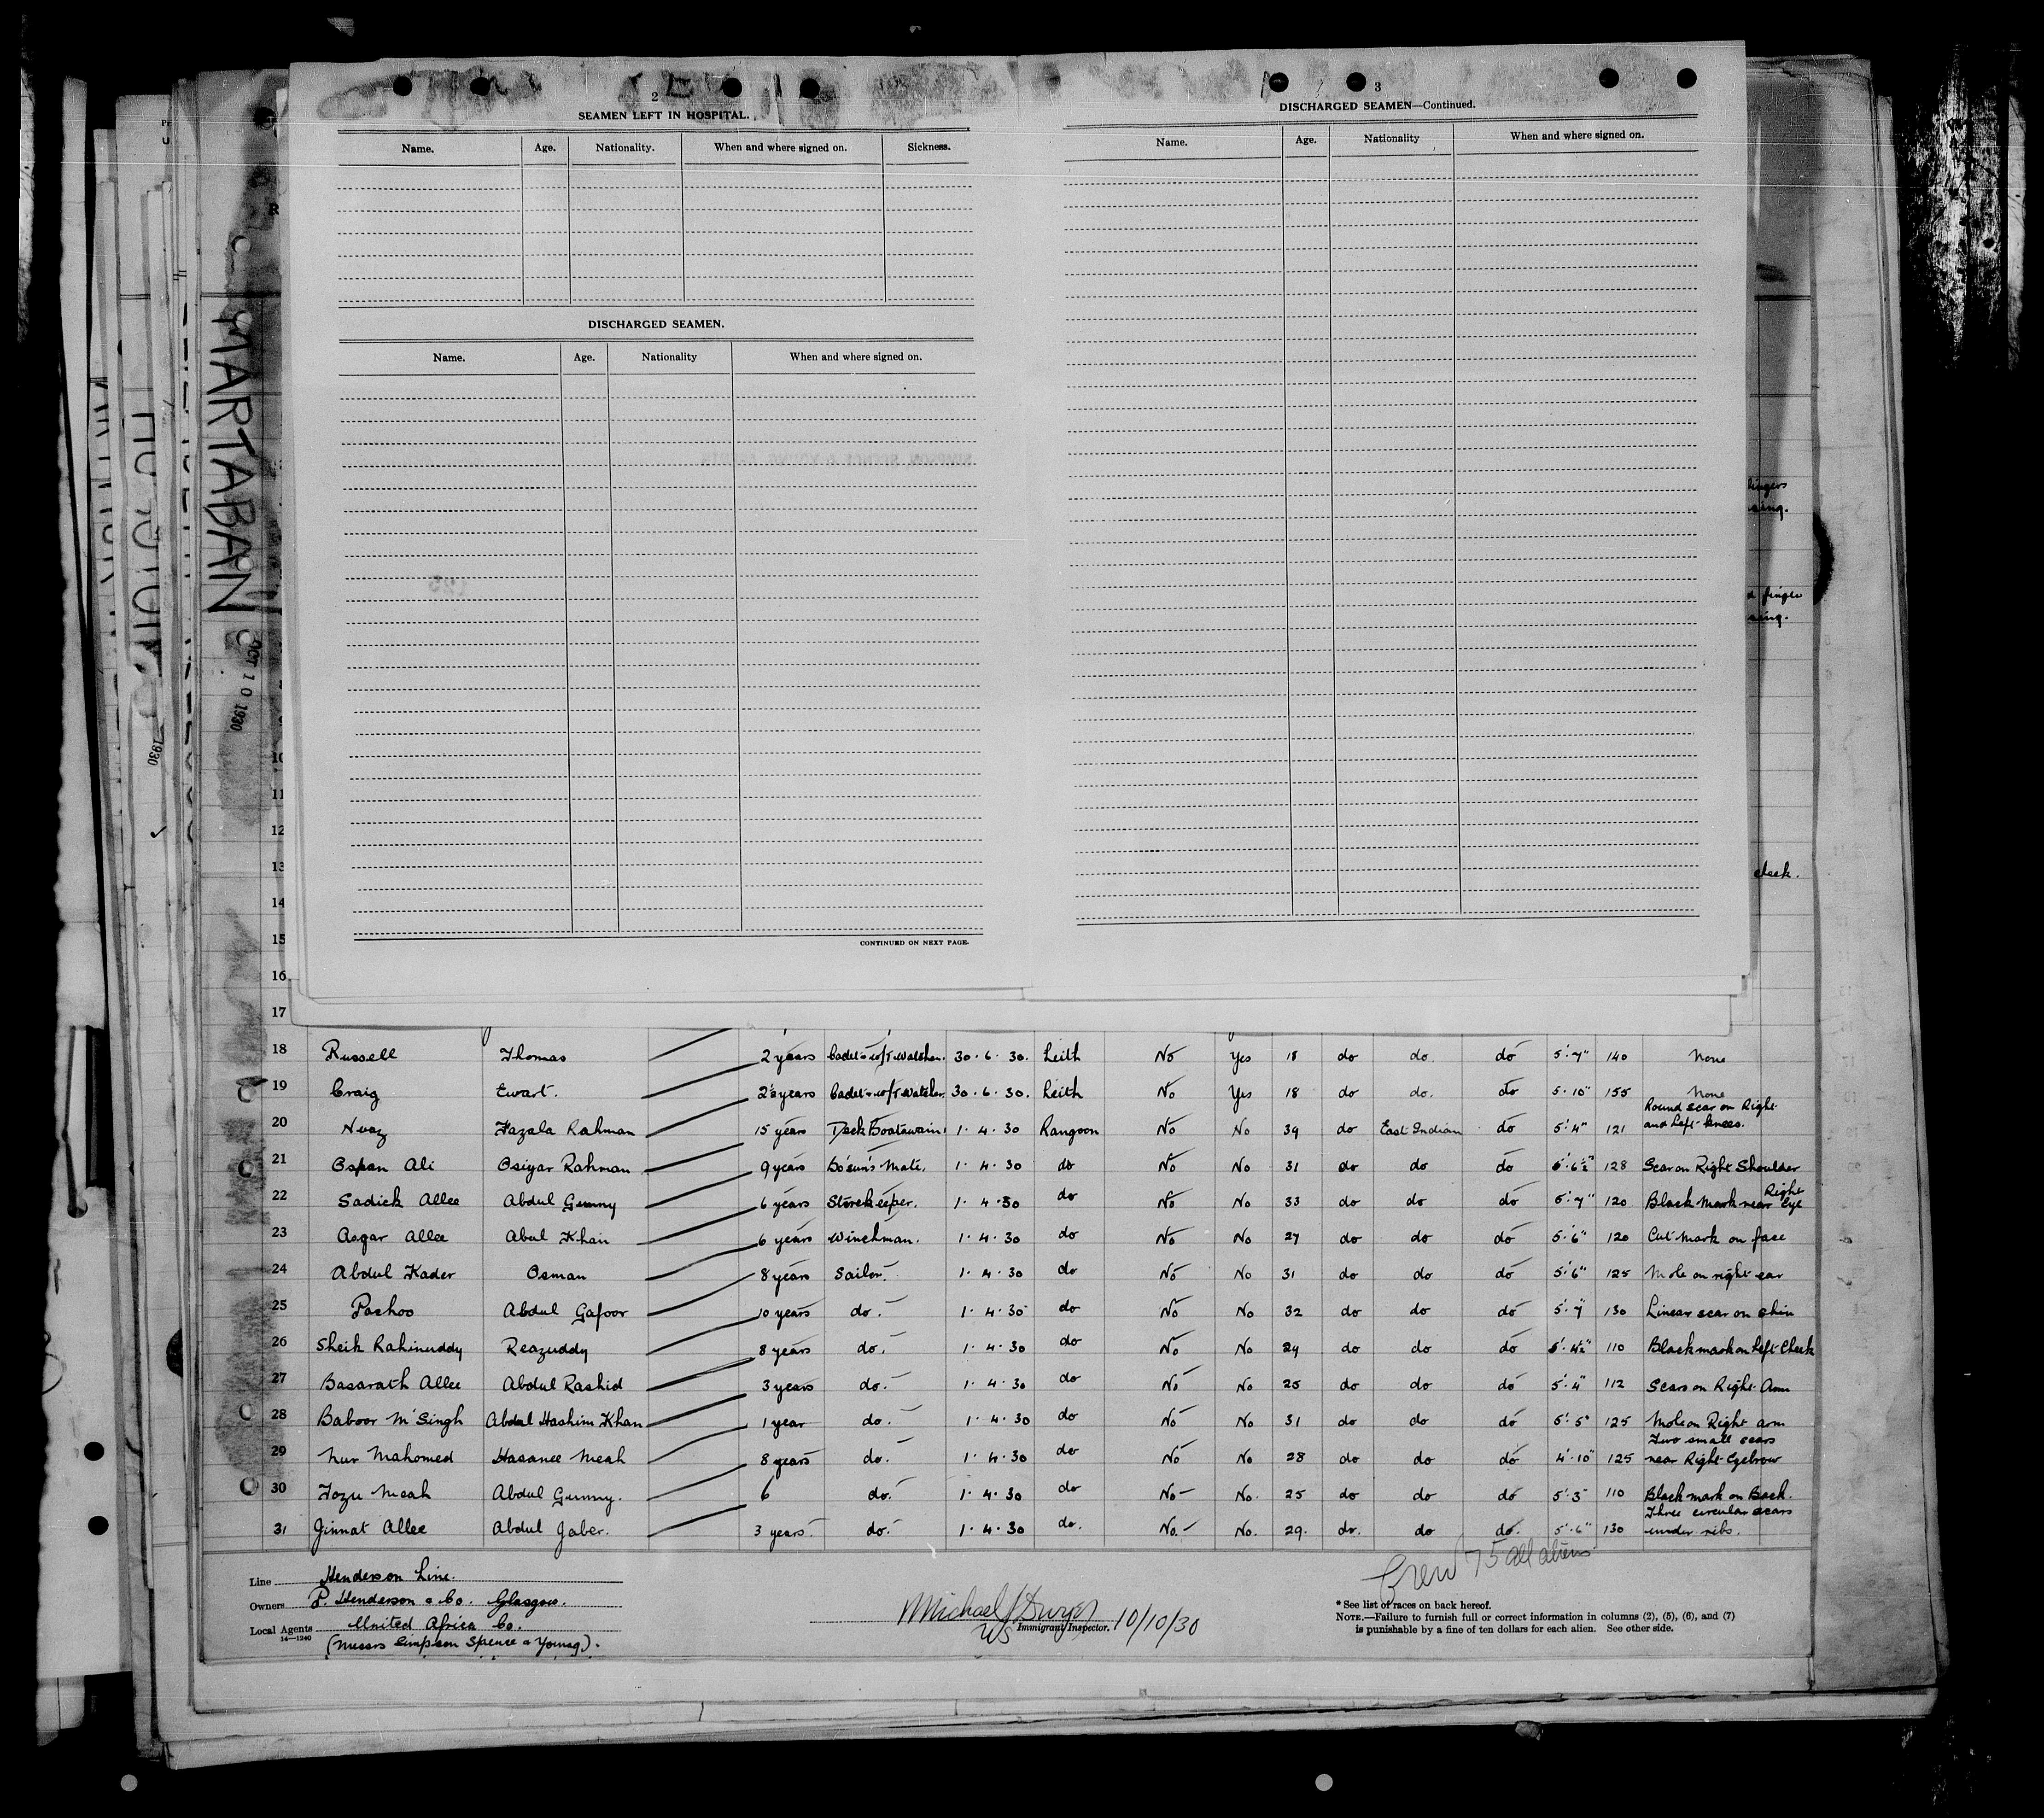 2
SEAMEN LEFT IN HOSPITAL.
Name. Age. Nationality. When and where signed on. Sickness.
DISCHARGED SEAMEN.
Name. Age. Nationality When and where signed on.
CONTINUED ON NEXT PAGE.
3
DISCHARGED SEAMEN—Continued.
Name. Age. Nationality When and where signed on.
MARTABAN
OCT 10 1930
1930
fingers
finger
cheek.
10
11
12
13
14
15
16
17
18 Russell Thomas 2 years Cadet & w/T. Watcher. 30.6.30. Leith No Yes 18 do do. do 5'.7" 140 None
19 Craig Ewart. 2½ years Cadet & w/T Watcher. 30.6.30. Leith No Yes 18 do do. do 5.10" 155 None
20 Nuaz Fazala Rahman 15 years Deck Boatswain 1.4.30 Rangoon No No 39 do East Indian do 5'.4" 121 Round scar on Right and Left knees.
21 Ospan Ali Osiyar Rahman 9 years Bo'sun's Mate. 1.4.30 do No No 31 do do do 5'.6½" 128 Scar on Right Shoulder
22 Sadick Allee Abdul Gunny 6 years Storekeeper. 1.4.30 do No No 33 do do do 5'.7" 120 Black Mark near Right Eye
23 Asgar Allee Abul Khan 6 years Winchman. 1.4.30 do No No 27 do do do 5'.6" 120 Cut Mark on face
24 Abdul Kader Osman 8 years Sailor. 1.4.30 do No No 31 do do do 5'.6" 125 Mole on right ear
25 Pachoo Abdul Gafoor 10 years do. 1.4.30 do No No 32 do do do 5'.7" 130 Linear scar on shin
26 Sheik Rahinuddy Reazuddy 8 years do. 1.4.30 do No No 24 do do do 5'.4½" 110 Black mark on Left Cheek
27 Basarath Allee Abdul Rashid 3 years do. 1.4.30 do No No 25 do do do 5'.4" 112 Scars on Right Arm
28 Baboor M'Singh Abdul Hashim Khan 1 year do. 1.4.30 do No No 31 do do do 5'.5" 125 Mole on Right arm
29 Nur Mahomed Hasanee Meah 8 years do. 1.4.30 do No No 28 do do do 4'.10" 125 Two small scars near Right Eyebrow
30 Fozu Meah Abdul Gunny. 6 do. 1.4.30 do No No. 25 do do do 5'.3" 110 Black mark on Back.
31 Jinnat Allee Abdul Jaber. 3 years. do. 1.4.30 do. No. No. 29. do. do do. 5'.6" 130 Three circular scars under ribs.
Crew 75 all aliens
Line Henderson Line.
Owners P. Henderson & Co. Glasgow.
Local Agents United Africa Co.
14—1240
(Messrs Simpson Spence & Young).
Michael J Dwyer 10/10/30
Immigrant Inspector.
* See list of races on back hereof.
NOTE.—Failure to furnish full or correct information in columns (2), (5), (6), and (7)
is punishable by a fine of ten dollars for each alien. See other side.